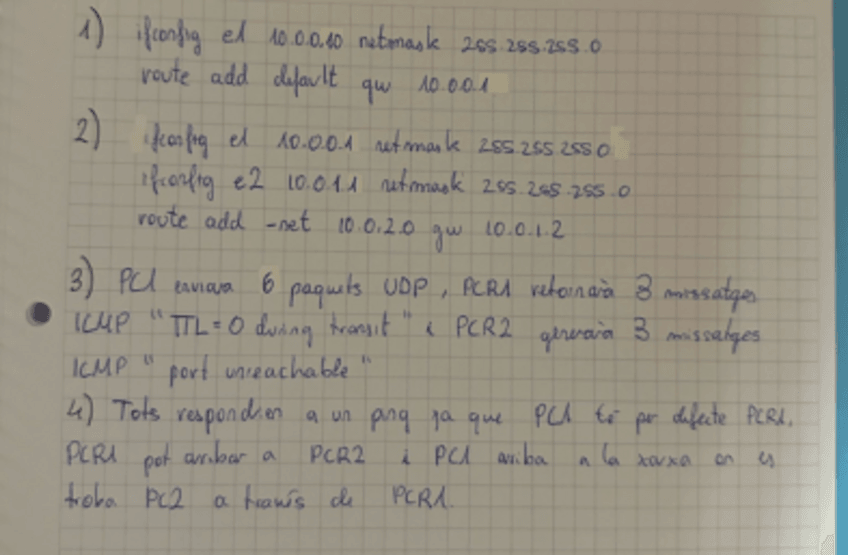 1) ifconfig e1 10.0.0.10 netmask 255.255.255.0
route add default gw 10.0.0.1
2) ifconfig e1 10.0.0.1 netmask 255.255.255.0
ifconfig e2 10.0.1.1 netmask 255.255.255.0
route add -net 10.0.2.0 gw 10.0.1.2
3) PC1 enviara 6 paquets UDP, PCR1 retornarà 3 missatges
ICMP "TTL=0 during transit" i PCR2 generarà 3 missatges
ICMP "port unreachable"
4) Tots respondrien a un ping ja que PC1 té per defecte PCR1.
PCR1 pot arribar a PCR2 i PC1 arriba a la xarxa on es
troba PC2 a través de PCR1.